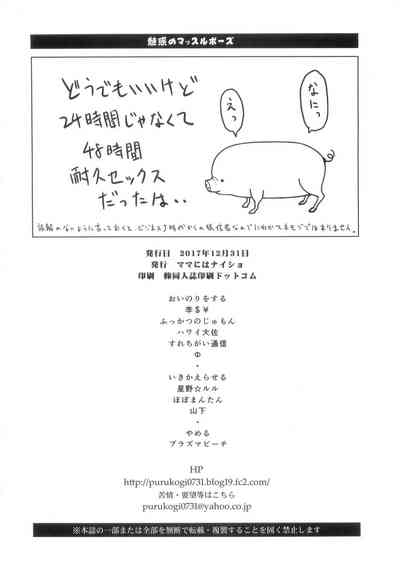 魅惑のマッスルポーズ
どうでもいいけど
24時間じゃなくて
48時間
耐久セックス
だったな・・
なにっ
えっ
発行日 2017年12月31日
発行 ママにはナイショ
印刷 ㈱同人誌印刷ドットコム
おいのりをする
李$¥
ふっかつのじゅもん
ハワイ大佐
すれちがい通信
Φ
・
いきかえらせる
星野☆ルル
ほぼまんたん
山下
・
やめる
プラズマピーチ
HP
http://purukogi0731.blog19.fc2.com/
苦情・要望等はこちら
purukogi0731@yahoo.co.jp
※本誌の一部または全部を無断で転載・複製することを固く禁止します